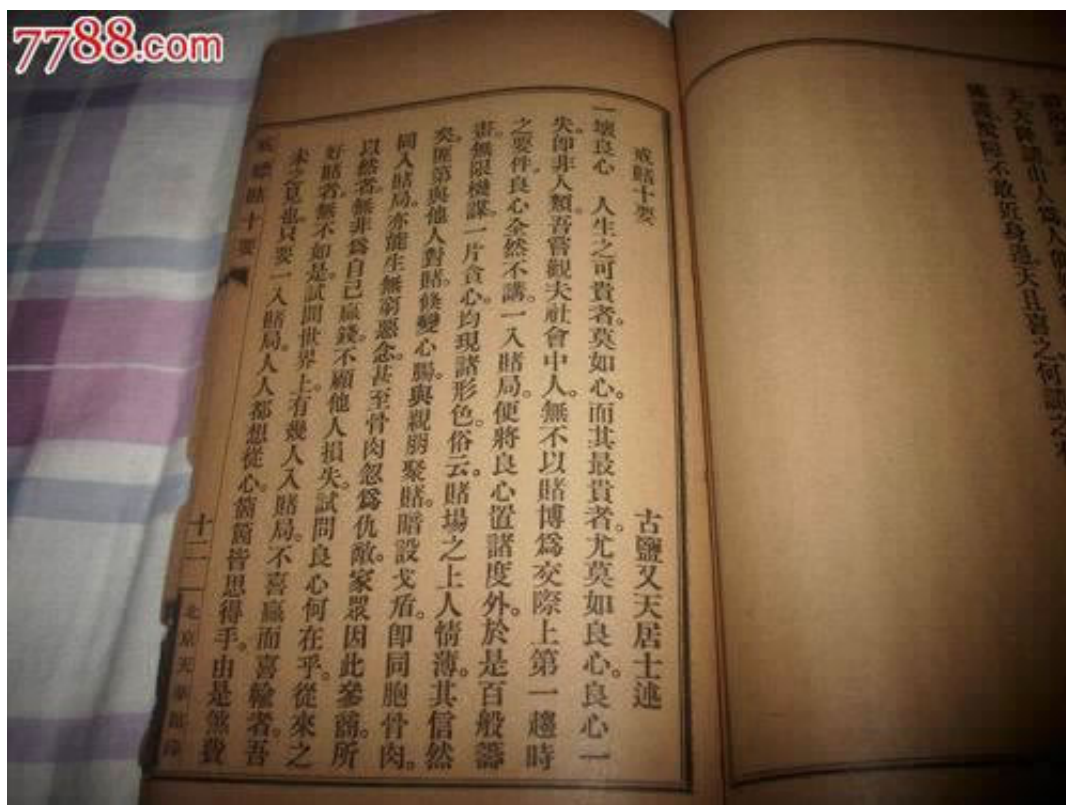 7788.com
天天降諸由人爲人
不敢近身邊天且喜之何
戒賭十要
古鹽又天居士述
一壞良心 人生之可貴者。莫如心。而其最貴者。尤莫如良心。良心一
失。卽非人類。吾嘗觀夫社會中人。無不以賭博爲交際上第一趨時
之要件。良心全然不講。一入賭局。便將良心置諸度外。於是百般籌
畫。無限機謀。一片貪心。均現諸形色。俗云。賭場之上人情薄。其信然
矣。匪第與他人對賭。倏變心腸。與親朋聚賭。暗設戈矛。卽同胞骨肉。
同入賭局。亦能生無窮惡念。甚至骨肉忽爲仇敵。家眾因此參商。所
以然者。無非爲自己贏錢。不顧他人損失。試問良心何在乎。從來之
好賭者。無不如是。試問世界上。有幾人入賭局。不喜贏而喜輸者。吾
未之見也。只要一入賭局。人人都想從心。箇箇皆思得手。由是煞費
戒嫖賭十要
十二
北京天華館